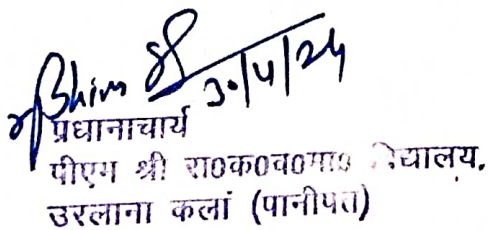 30/4/24
प्रधानाचार्य
पीएम श्री रा०क०व०मा० विद्यालय,
उरलाना कलां (पानीपत)